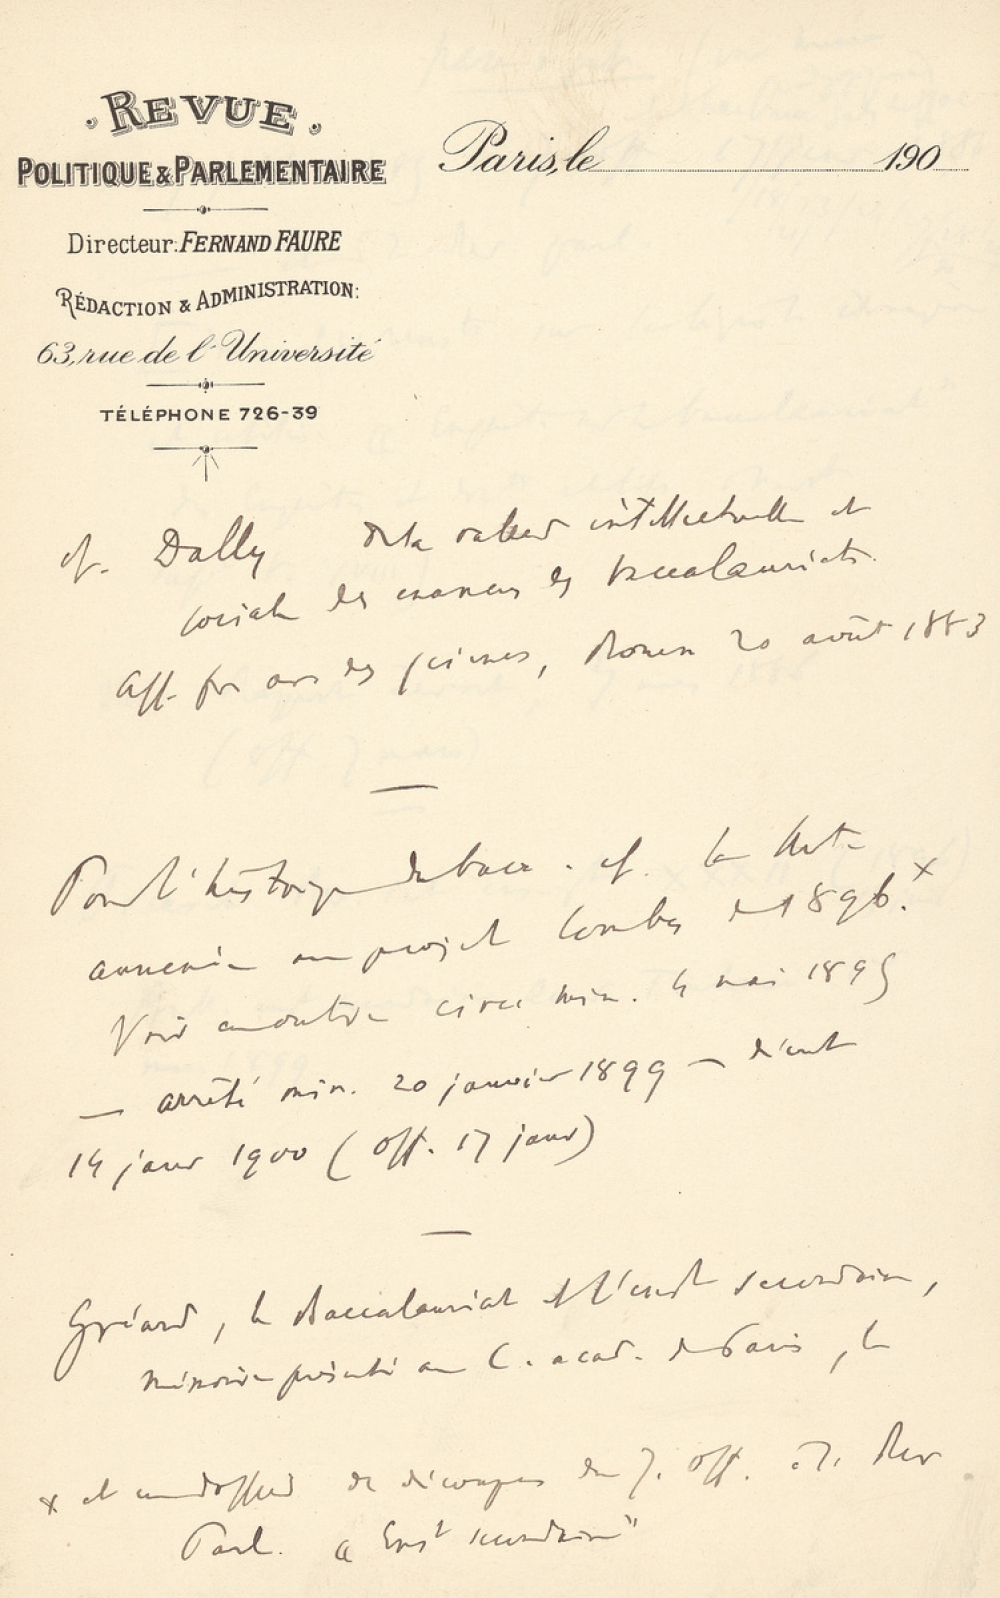 REVUE
POLITIQUE & PARLEMENTAIRE
Directeur: FERNAND FAURE
RÉDACTION & ADMINISTRATION:
63, rue de l'Université
TÉLÉPHONE 726-39
Paris, le 190
cf. Dally De la valeur intellectuelle et
sociale des examens des baccalauréats.
Aff. for des sciences, Rouen 20 août 1883
Pour l'histoire du bacc. cf. la
annexée au projet Combes de 1896. x
Voir en outre circ. min. 4 mai 1895
— arrêté min. 20 janvier 1899 — décret
14 janv 1900 (Off. 17 janv)
Gréard, le Baccalauréat et l'enst secondaire,
mémoire présenté au C. acad. de Paris, le
x et un dossier de découpes du J. Off. Rev
Parl. "Enst secondaire"